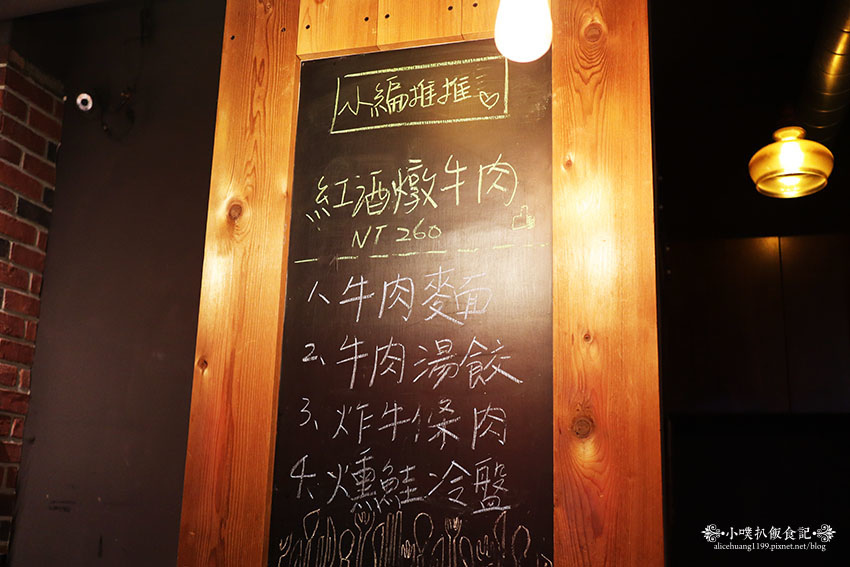 小編推推
紅酒燉牛肉
NT 260
1、牛肉麥面
2、牛肉湯餃
3、炸牛條肉
4、燻鮭冷盤
小噗扒飯食記
alicehuang1199.pixnet.net/blog